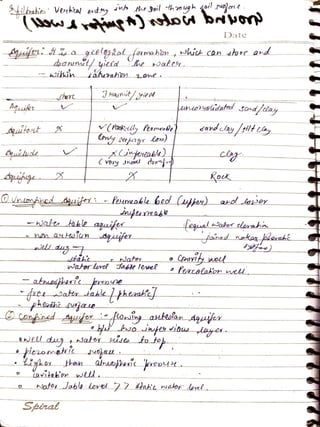 Infiltration: Vertical entry into the soil through soil surface.
Ground water (Aquifer & well)
Date
Aquifer: It is a geological formation, which can store and
transmit / yield the water.
- within saturation zone.
store Transmit / yield
Aquifer ✓ ✓ unconsolidated sand/clay
Aquitard X ✓ (Partially Permeable) sand clay / silt clay
(only seepage low)
Aquiclude ✓ X (impermeable) clay
(very small
Aquifuge X X Rock
① Unconfined Aquifer: - Permeable bed (upper) and lower
impermeable
- water table aquifer (equal water elevation
- non artesian aquifer joined makes phreatic
well dug surface)
static = water • Gravity well
water level table level • Percolation well.
- atmospheric pressure
- free water table [phreatic]
phreatic surface
② Confined Aquifer :- flowing artesian aquifer
• b/w two impervious layer.
• well dug, water rises to top
• piezometric surface.
• higher than atmospheric pressure.
• cavitation well.
• Water table level >> static water level.
Spiral